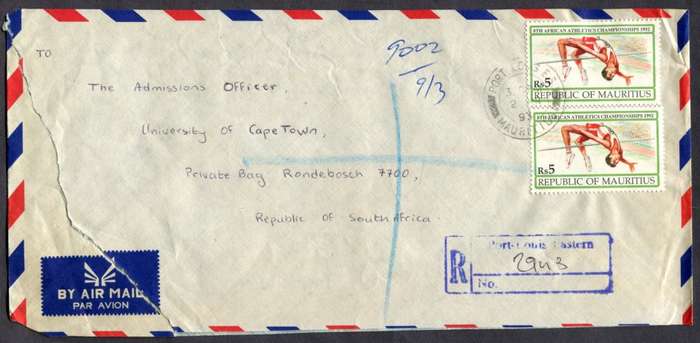 TO
The Admissions Officer,
University of Cape Town.
Private Bag Rondebosch 7700,
Republic of South Africa.
9002
9/3
8TH AFRICAN ATHLETICS CHAMPIONSHIPS 1992
Rs5
REPUBLIC OF MAURITIUS
8TH AFRICAN ATHLETICS CHAMPIONSHIPS 1992
Rs5
REPUBLIC OF MAURITIUS
PORT
93
MAURITIUS
R
Port-Louis Eastern
2943
No.
BY AIR MAIL
PAR AVION